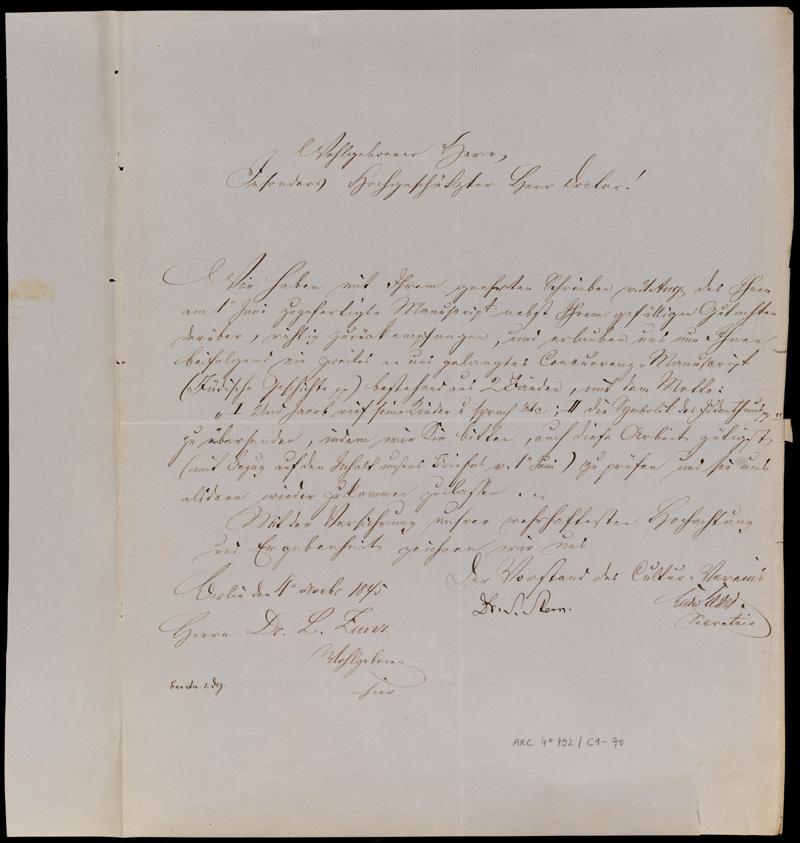 Wohlgeborner Herr,
Besonders Hochgeschätzter Herr Doctor!
Wir haben mit Ihrem geehrten Schreiben v. Aug. das Ihnen
am 1t Juni zugefertigte Manuscript nebst Ihrem gefälligen Gutachten
darüber, richtig zurückempfangen, und erlauben uns nun Ihnen
beifolgend ein zweites an uns gelangtes Concurrenz-Manuscript
(Jüdische Geschichte pp) bestehend aus 2 Bänden, mit dem Motto:
"I Und Jacob rief seine Kinder u sprach etc; II die Symbolik des Judenthums pp"
zu übersenden, indem wir Sie bitten, auch diese Arbeit gütigst
(mit Bezug auf den Inhalt unsers Briefes v. 1t Juni) zu prüfen und sie uns
alsdann wieder zukommen zu lassen. –
Mit der Versicherung unsrer wahrhaftesten Hochachtung
und Ergebenheit zeichnen wir uns
Der Vorstand des Cultur-Vereins
Berlin den 4t 1845
Dr. S. Stern.
Secretair
Herrn Dr. L. Zunz
Wohlgeboren
hier
1. Dez.
ARC 4° 792 / C1-70